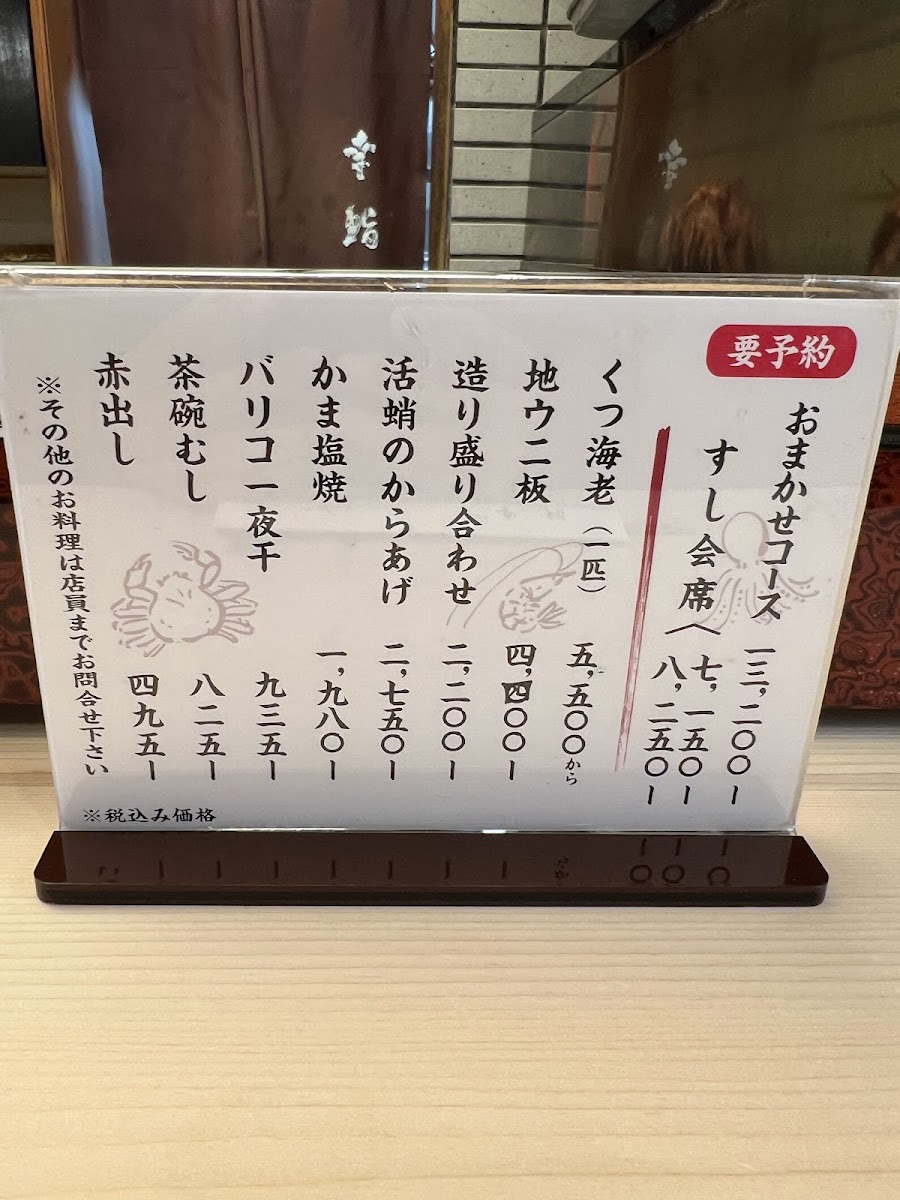 幸鮨
要予約
おまかせコース 一三,二〇〇ー
すし会席 七,一五〇ー
八,二五〇ー
くつ海老（一匹） 五,五〇〇から
地ウニ板 四,四〇〇ー
造り盛り合わせ 二,二〇〇ー
活蛸のからあげ 二,七五〇ー
かま塩焼 一,九八〇ー
バリコ一夜干 九三五ー
茶碗むし 八二五ー
赤出し 四九五ー
※その他のお料理は店員までお問合せ下さい
※税込み価格